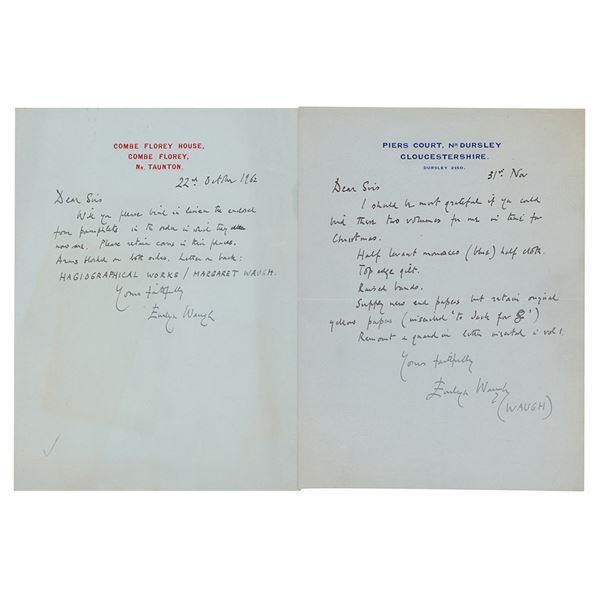 COMBE FLOREY HOUSE,
COMBE FLOREY,
Nr. TAUNTON.
22nd October 1962
Dear Sirs
Will you please bind in linen the enclosed
four pamphlets in the order in which they
now are. Please retain covers in their places.
Arms blocked on both sides. Letter on back:
HAGIOGRAPHICAL WORKS / MARGARET WAUGH.
Yours faithfully
Evelyn Waugh
PIERS COURT, Nr DURSLEY
GLOUCESTERSHIRE.
DURSLEY 2150.
31st Nov
Dear Sirs
I should be most grateful if you could
bind these two volumes for me in time for
Christmas.
Half levant morocco (blue) half cloth.
Top edge gilt.
Raised bands.
Supply new end papers but retain original
yellow papers (inscribed 'to Jack for
Remount & guard in letter inserted in vol 1.
Yours faithfully
Evelyn Waugh
(WAUGH)